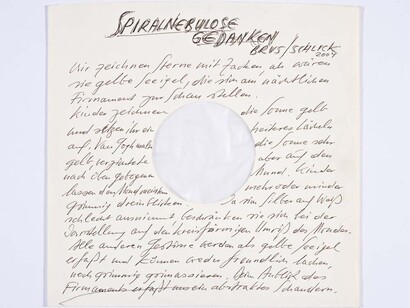 SPIRALNEBULOSE
GEDANKEN
BRUS/SCHLICK
2007
Wir zeichnen Sterne mit Zacken, als wären
sie gelbe Seeigel, die sich am nächtlichen
Firmament zur Schau stellen.
Kinder zeichnen die Sonne gelb
und setzen ihr ein heiteres Lächeln
auf. Van Gogh die Sonne sehr
gelb, verzichtete aber auf den
nach oben gebogenen Mund. Kinder
lassen den Mond mehr oder minder
grimmig dreinblicken. Da sich Silber auf Weiß
schlecht ausnimmt, beschränken sie sich bei der
Darstellung auf den kreisförmigen Umriß des Mondes.
Alle anderen Gestirne werden als gelbe Seeigel
erfaßt und können weder freundlich lachen,
noch grimmig grimassieren. Beim Anblick des
Firmaments erfaßt uns ein abstraktes Schaudern.